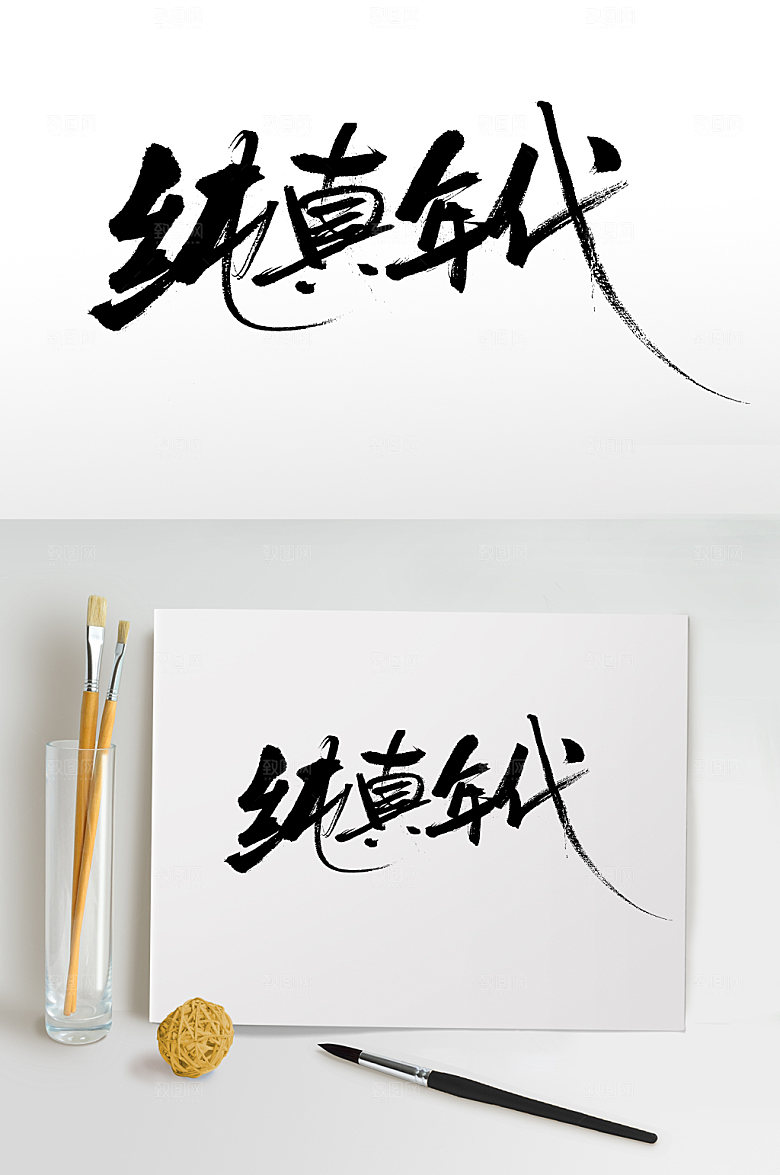 纯真年代
纯真年代